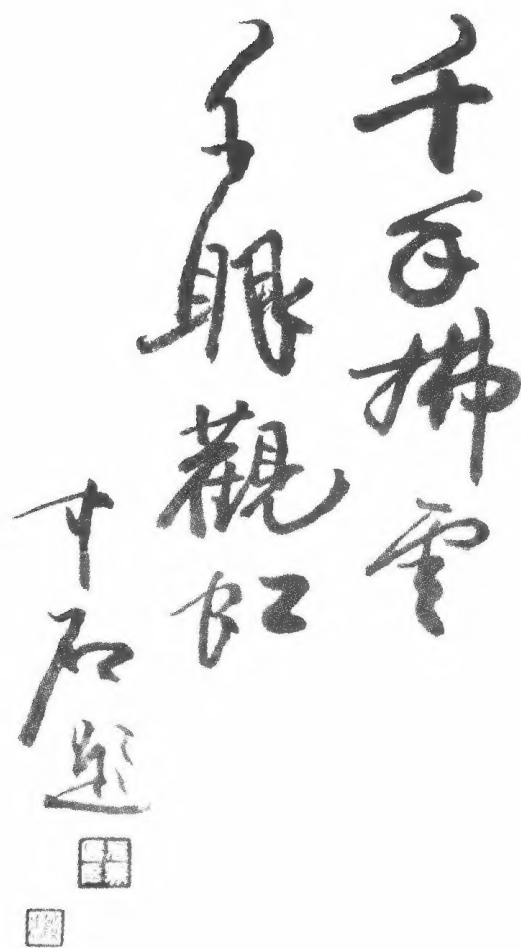 千手拂雲
千眼觀虹
十石題